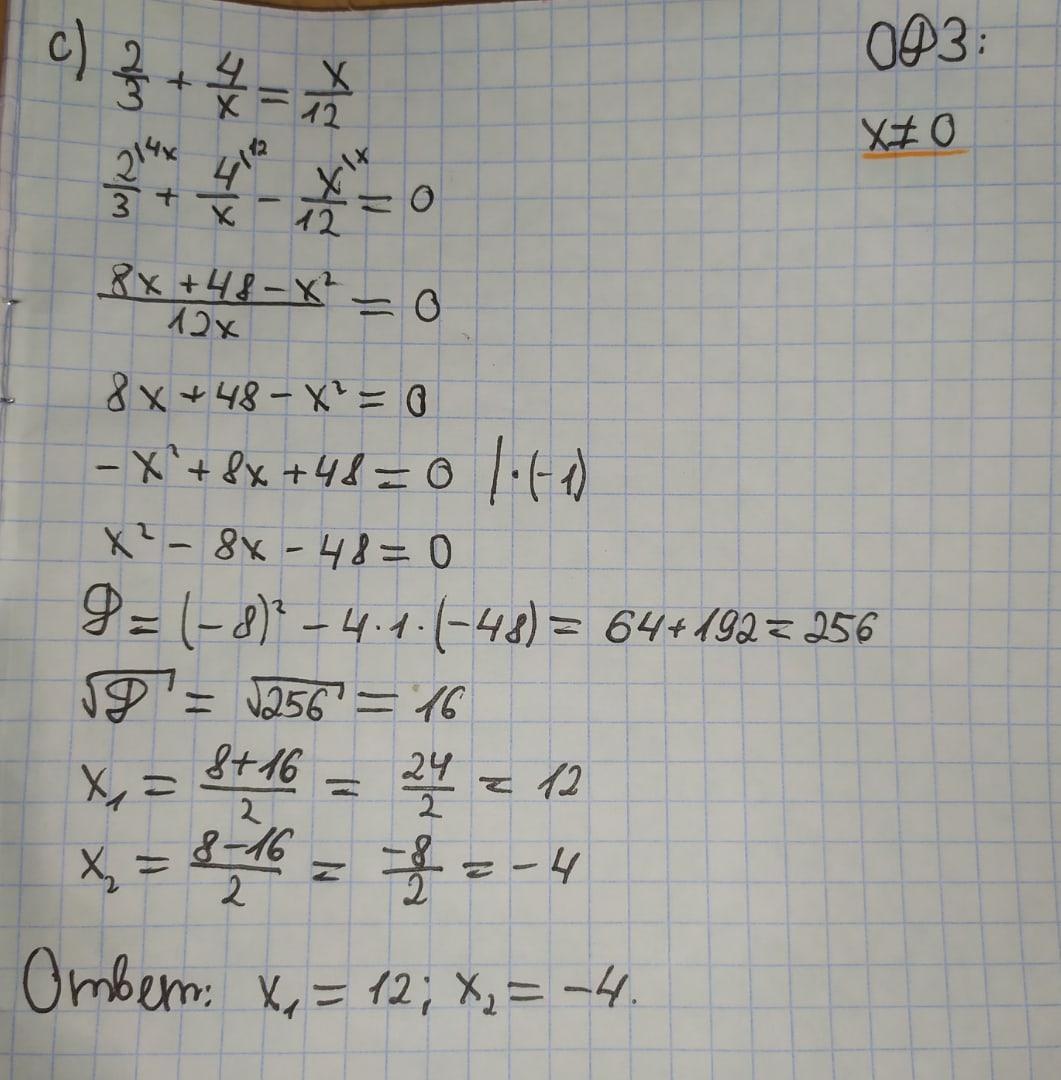 c) 2/3 + 4/x = x/12
ОДЗ:
x ≠ 0
2\4x/3 + 4\12/x − x\x/12 = 0
8x + 48 − x²/12x = 0
8x + 48 − x² = 0
−x² + 8x + 48 = 0 | · (−1)
x² − 8x − 48 = 0
D = (−8)² − 4 · 1 · (−48) = 64 + 192 = 256
√D = √256 = 16
x₁ = 8+16/2 = 24/2 = 12
x₂ = 8−16/2 = −8/2 = −4
Ответ: x₁ = 12; x₂ = −4.